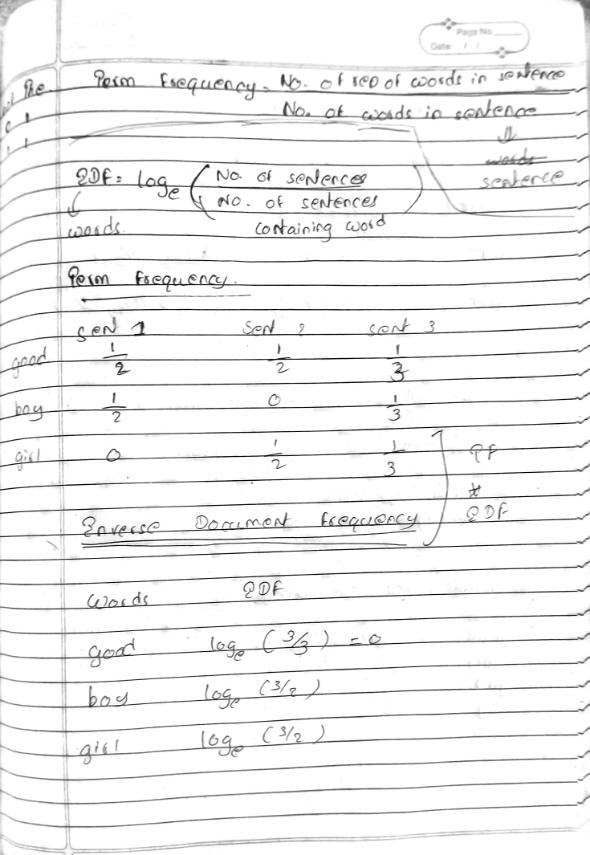 Page No.
Date / /
The Term Frequency = No. of rep of words in sentence
No. of words in sentence
words
sentence
IDF = loge ( No. of sentences
No. of sentences
containing word )
words
Term Frequency.
sent 1 sent 2 sent 3
good 1/2 1/2 1/3
boy 1/2 0 1/3
girl 0 1/2 1/3
TF
*
IDF
Inverse Document Frequency
Words IDF
good loge (3/3) = 0
boy loge (3/2)
girl loge (3/2)